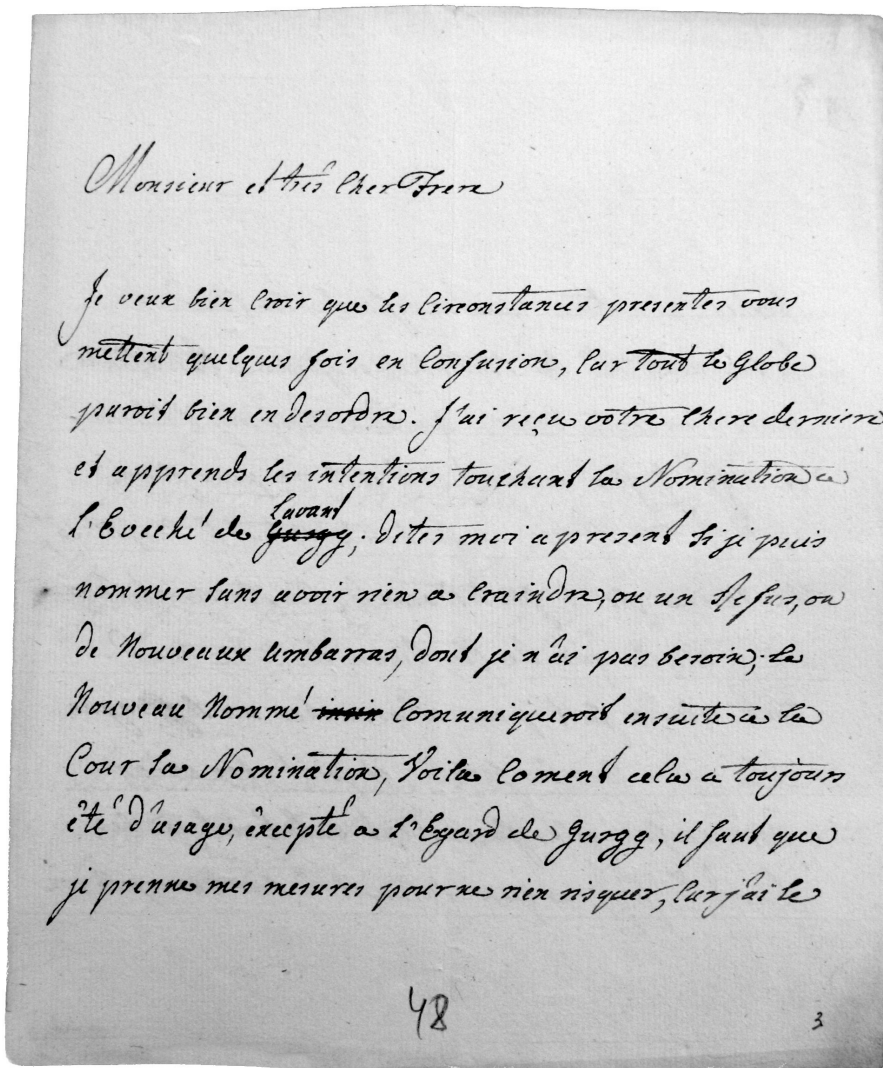 Monsieur et très cher Frere
Je veux bien croir que les circonstances presentes vous
mettent quelques fois en confusion, car tout le Globe
paroit bien en desordre. J'ai reçu votre chere derniere
et apprends les intentions touchant la Nomination a
Lavant
l'Eveché de Gurgg; dites moi apresent si je puis
nommer sans avoir rien a craindre, ou un Refus, ou
de Nouveaux embarras, dont je n'ai pas besoin; le
Nouveau Nommé comuniqueroit ensuite a la
Cour sa Nomination, Voila coment cela a toujours
été d'usage, excepté a l'Egard de Gurgg, il faut que
je prenne mes mesures pour ne rien risquer, car j'ai le
48
3